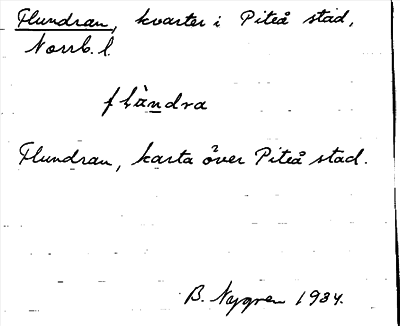 Flundran, kvarter i Piteå stad,
Norrb. l.
flàndra
Flundran, karta över Piteå stad.
B. Nygren 1934.